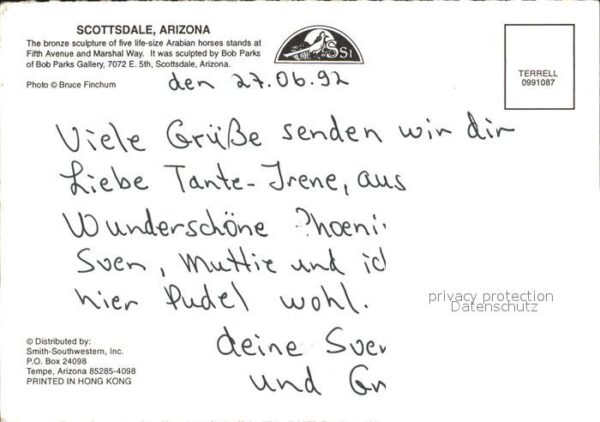 SCOTTSDALE, ARIZONA
The bronze sculpture of five life-size Arabian horses stands at
Fifth Avenue and Marshal Way. It was sculpted by Bob Parks
of Bob Parks Gallery, 7072 E. 5th, Scottsdale, Arizona.
Photo © Bruce Finchum
SSI
TERRELL
0991087
den 27.06.92
Viele Grüße senden wir dir
Liebe Tante-Irene, aus
Wunderschöne Phoeni
Sven, Muttie und ic
hier Pudel wohl.
deine Sven
und Gr
privacy protection
Datenschutz
© Distributed by:
Smith-Southwestern, Inc.
P.O. Box 24098
Tempe, Arizona 85285-4098
PRINTED IN HONG KONG